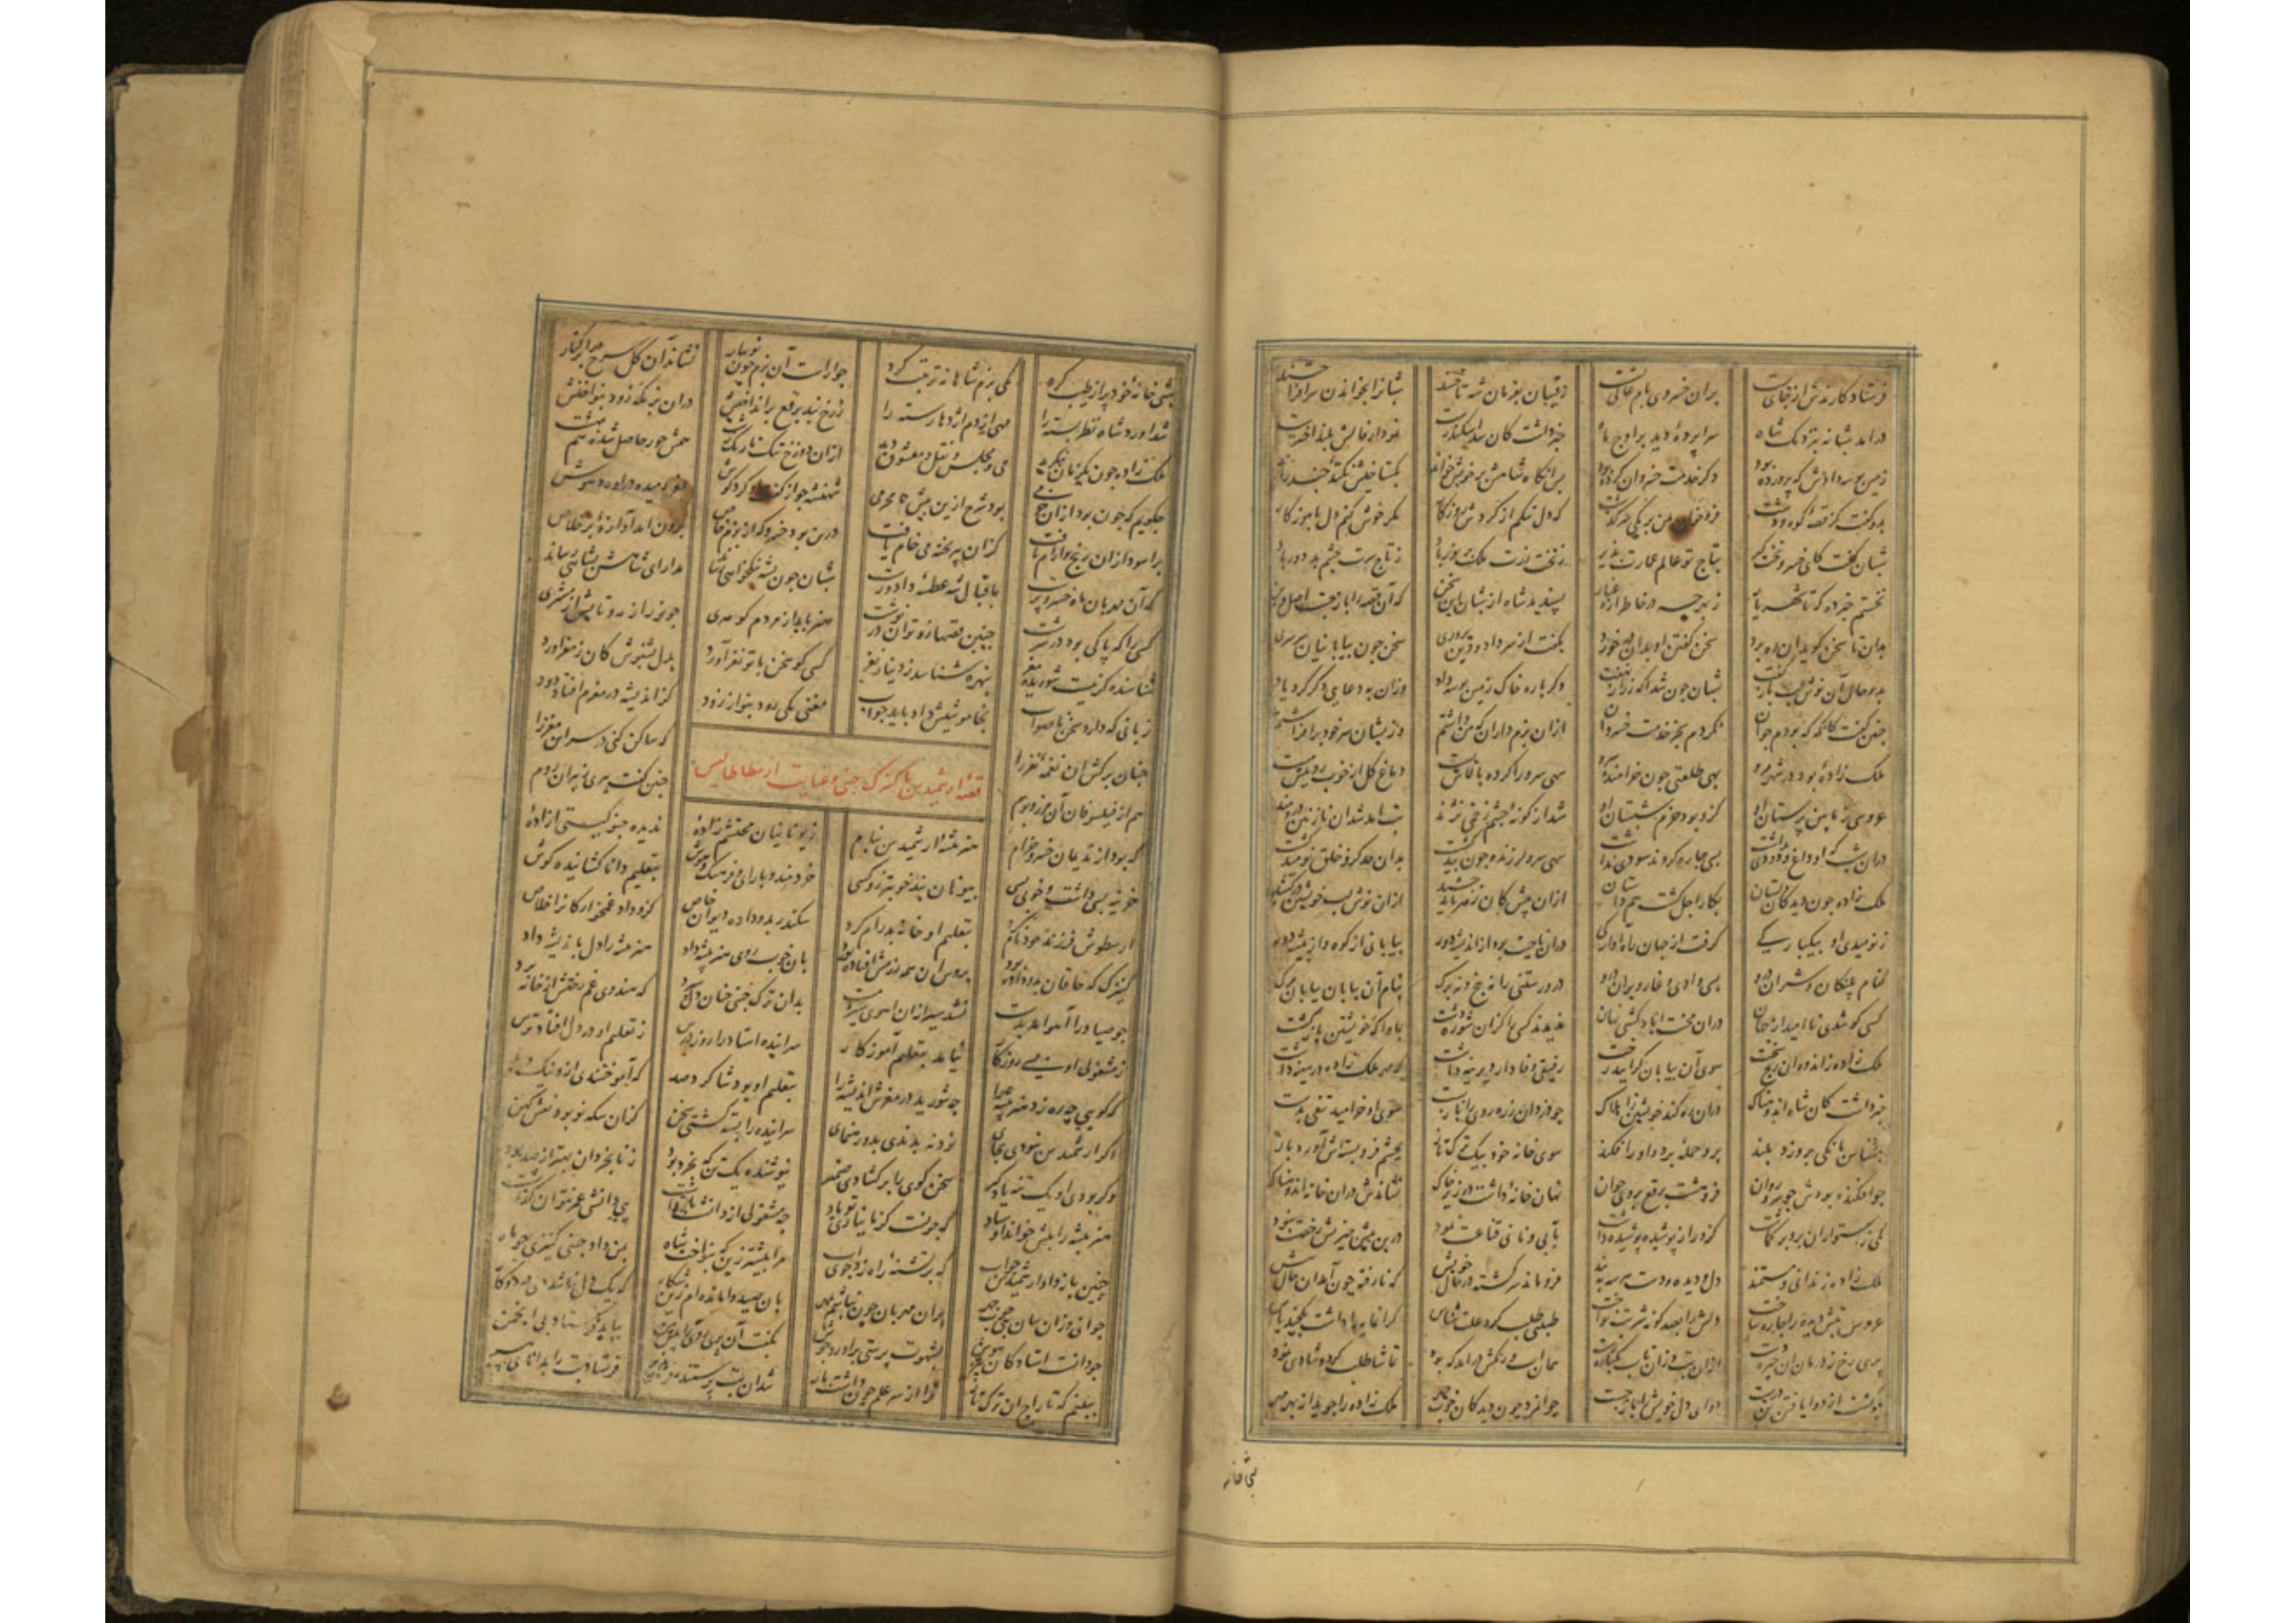 فرستاد کارندش از جای پست بران خسروی بام عالی نشست رقیبان بفرمان شه تاختند شبان را بخواندن سرافراختند
درآمد شبانه بنزدیک شاه سراپرده دید بر اوج ماه که دانست کان سد اسکندرست نمودار فالش بلند اخترست
زمین بوسه دادش که پرورده بود دگر خدمت خسروان کرده بود پس آنگاه شاهش بر خویش خواند بگستاخیش نکتهٔ چند راند
بدو گفت کز قصهٔ کوه و دشت فرو خوان بمن بر یکی سرگذشت که دل تنگم از گردش روزگار مگر خوش کنم دل بآموزگار
شبان گفت کای خسرو تخت گیر بتاج تو عالم عمارت پذیر ز تخت زرت ملک پر نور باد ز تاج سرت چشم بد دور باد
نخستم خبر ده که تا شهریار ز بهر چه در خاطر آرد غبار پسندید شاه از شبان این سخن که آن قصه را باز جست اصل و بن
بدان تا سخنگو بدان ره برد سخن گفتن او بدان در خورد نگفت از سر داد و دین پروری سخن چون بیابانیان سرسری
بدو حال آن نوش لب باز گفت شبان چون شد آگه ز راز نهفت دگر باره خاک زمین بوسه داد وزان به دعایی دگر کرد یاد
چنین گفت کانگه که بودم جوان نکردم بجز خدمت خسروان ازان بزم داران که من داشتم وزیشان سر خود برافراشتم
ملک زادهٔ بود در شهر مرو بهی طلعتی چون خرامنده سرو سهی سرو را کرده بالاش پست دماغ گل از خوب روییش مست
عروسی ز پایین پرستان او کزو بود خرم شبستان او شد از گونه چشم زخمی نژند تب آمد شد آن نازنین دردمند
دران تب که او داغ و دودی نداشت بسی چاره کردند سودی نداشت سهی سرو لرزنده چون بید گشت بدان حد کزو خلق نومید گشت
ملک زاده چون دید کان دلستان بکار اجل گشت همداستان ازان پیش کان زهر باید چشید ازان نوش لب خویشتن درکشید
ز نومیدی او بیکبارگی گرفت از جهان راه آوارگی دران ناحیت بود از اندیشه دور بیابانی از کوه و از بیشه دور
کنام پلنگان و شیران درو بسی وادی و غار ویران درو درو رستنی را نه بیخ و نه برگ بنام آن بیابان بیابان مرگ
کسی کو شدی ناامید از جهان دران محنت آباد گشتی نهان ندیدند کس را کزان شوره دشت بماواگه خویشتن بازگشت
ملک زاده ز اندوه آن رنج سخت سوی آن بیابان گرایید رخت رفیقی وفادار دیرینه داشت که مهر ملک زاده در سینه داشت
خبر داشت کان شاه اندوهناک دران ره کند خویشتن را هلاک چو دزدان زره روی را باز بست سوی او خرامید تیغی بدست
بنشناس بانگی برو زد بلند برو حمله برد و او را فکند سوی خانه خود بیک ترک تاز بچشم فروبسته‌ش آورد باز
چو افکنده بودش چو سرو روان فروهشت برقع بروی جوان نهان خانهٔ داشت در زیر خاک نشاندش دران خانه اندوهناک
یکی ز استواران برو بر گماشت کزو راز پوشیده پوشیده داشت بآبی و نانی قناعت نمود درین بیش چیزیش رخصت نبود
ملک زادهٔ زندانی و مستمند دل و دیده و دست هر سه به بند فرومانده سرگشته در حال خویش که نارفته چون آمد آن حال پیش
عروس تبش دیده را چاره ساخت دلش را بصد گونه شربت نواخت طبیبی طلب کرد علت شناس گرانمایه را داشت یک چند پاس
پری رخ ز درمان آن چیره دست ازان تب وزان تاب یکباره رست همان آب و رنگش درآمد که بود تماشا طلب کرد و شادی نمود
چو گشت از دوا یافتن تن درست دوای دل خویش را باز جست جوانمرد چون دید کان خوب چهر ملک زاده را جوید از بهر مهر
شبی خانه
شبی خانه خود پر از طیب کرد یکی بزم شاهانه ترتیب کرد چو آراست آن بزم چون نوبهار نشاند آن گل سرخ را بر کنار
شد آورد شاه نظر بسته را مهی از دم اژدها رسته را ز رخ بند برقع برانداختش دران بزمگه زود بنواختش
ملک زاده چون یک زمان بنگرید می و مجلس و نقل و معشوق دید ازان دوزخ تنگ تاریک زشت همش حور حاصل شده هم بهشت
چگویم که چون بود ازان خرمی بود شرح ازین بیش نامحرمی شهنشه چو از گفت کرد گوش رمیده درآورد هوش
برآسود ازان رنج و آرام یافت کزان پیر پخته می خام یافت درین بود خسرو که از بزم خاص برون آمد آوازهٔ بر خلاص
که آن مهربان ماه خسرو پرست باقبال شه عطسهٔ داد و رست شبان چون بشه نیکخواهی رساند مدارای شاهش بشاهی رساند
کسی را که پاکی بود در سرشت چنین قصها زو توان درنوشت هنر تابد از مردم گوهری چو نور از مه و تابش از مشتری
شناسنده گر نیست شوریده مغز نبهره شناسد ز دینار نغز کسی کو سخن با تو نغز آورد بدل بشنوش کان ز مغز آورد
زبانی که دارد سخن ناصواب بخاموشیش داد باید جواب مغنی یکی رود بنواز زود کز اندیشه در مغزم افتاد دود
چنان برکش آن نغمهٔ نغز را که ساکن کنی در سر این مغز را
قصهٔ ارشمیدس با کنیزک چینی و عنایت ارسطاطالیس
هم از فیلسوفان آن مرز و بوم چنین گفت پیری ز پیران روم
که بود از ندیمان خسرو خرام هنر پیشهٔ ارشمیدس بنام ز یونانیان محتشم زادهٔ ندیده چنو گیتی آزادهٔ
خزینه بسی داشت و خوبی بسی بیونان نبد خوبتر زو کسی خردمند و بارای و فرهنگ و هوش بتعلیم دانا گشاینده گوش
ارسطوش فرزند خود نام کرد بتعلیم او خانه بدرام کرد سکندر بدو داده دیوان خاص کزو داد غمخوارگان را خلاص
کنیزک که خاقان بدو داده بود بروس آن همه رزمش افتاده بود بآن خوب روی هنرپیشه داد هنرپیشه را دل باندیشه داد
چو صیاد را آهو آمد بدست نشد سیر ازان آهوی شیرمست بدان ترک چینی چنان دل سپرد که هندوی غم رختش از خانه برد
ز مشغولی او بسی روزگار نیامد بتعلیم آموزگار سراینده استاد را روز درس ز تعلیم او در دل افتاد ترس
که گویی چه ره زد هنرپیشه را چه شورید در مغزش اندیشه را بتعلیم او بود شاگرد صد که آموختندی ازو نیک و بد
اگر ارشمیدس نبودی بجای نود نه بدندی بدو رهنمای سراینده را بسته گشتی سخن کزان سکه نو بود نقش کهن
وگر بودی او یک تنه یادگیر سخن گوی را برگشادی ضمیر نیوشنده یک تن که بخرد بود ز نابخردان بهتر از صد بود
هنرپیشه را پیش خواند اوستاد که چونست کز ما نیاری تو یاد چه مشغولی از دانشت بازداشت به بی دانشی عمر نتوان گذاشت
چنین باز داد ارشمیدس جواب که بر تشنه راه زد جوی آب مرا بیشتر زین که بنواخت شاه بمن داد چینی کنیزی چو ماه
جوانی وزان سان جنی خوب چهر بران مهربان چون نباشم بمهر بآن صید وامانده ام زین شکار که یک دل نباشد دل در دو کار
چو دانست استاد کان تیز هوش بشهوت پرستی برآورد جوش بگفت آن پری روی را پیش من بباید فرستاد بی انجمن
ببینم که تاراج آن ترک تاز ترا از سر علم چون داشت باز شد آن بت پرستنده فرستاد بت را بدانای پیر